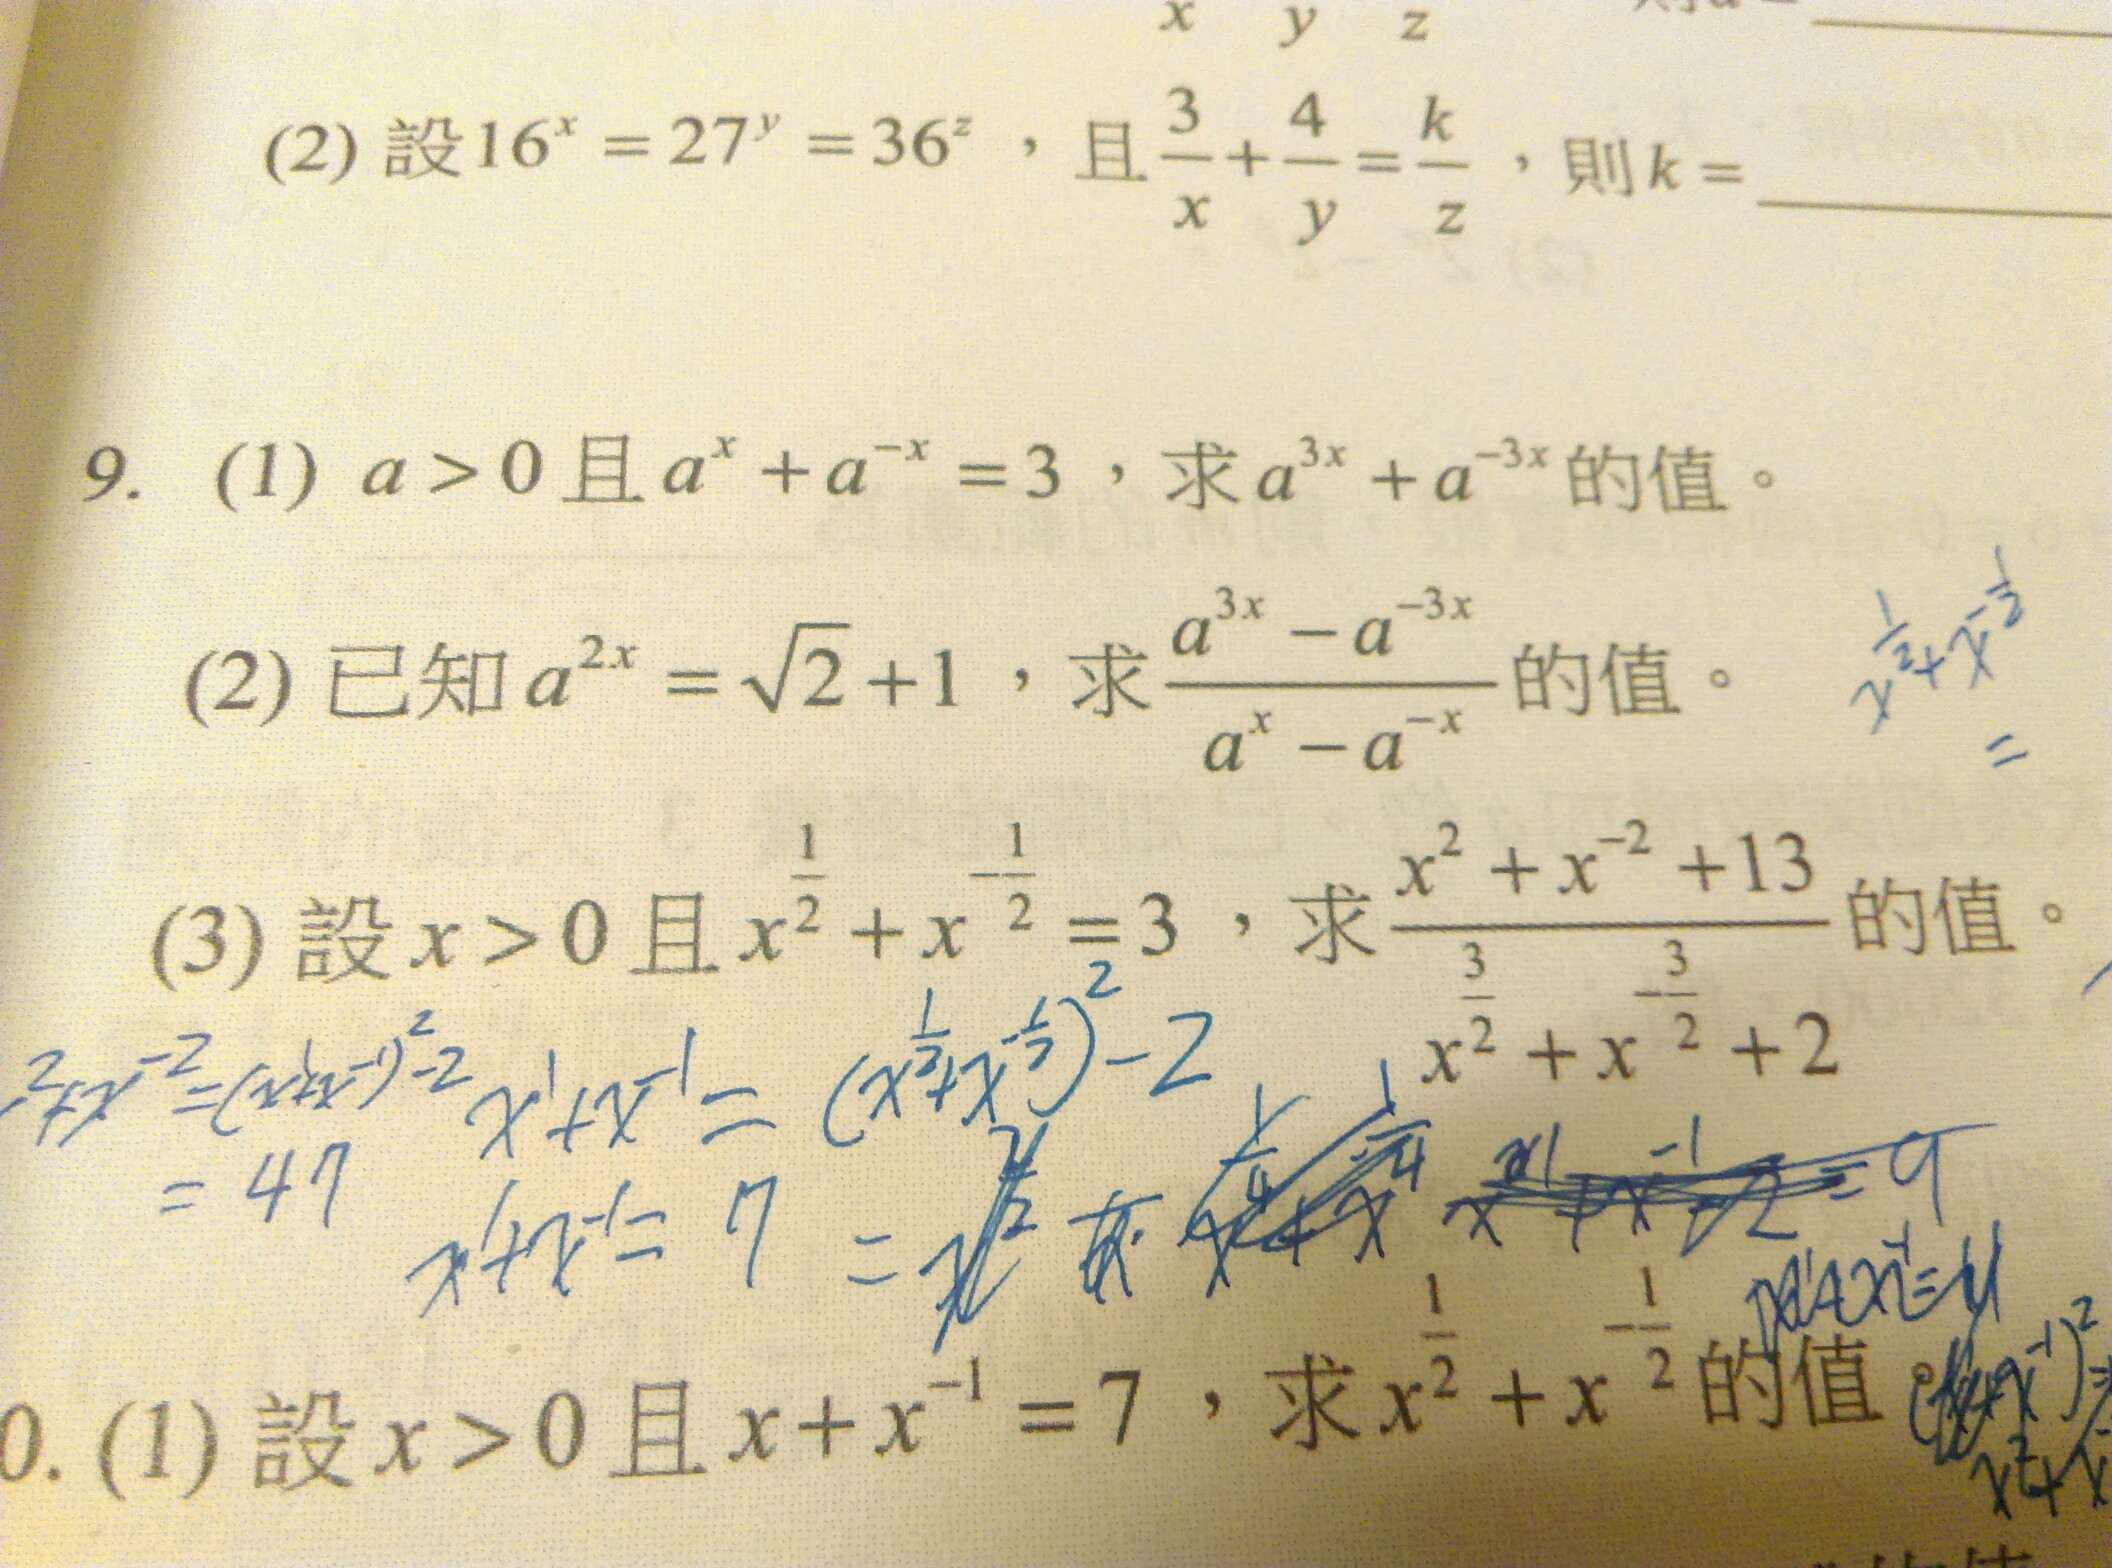 x y z
(2) 設 16^x = 27^y = 36^z ,且 3/x + 4/y = k/z ,則 k = ____
9. (1) a > 0 且 a^x + a^{-x} = 3 ,求 a^{3x} + a^{-3x} 的值。
(2) 已知 a^{2x} = √2 + 1 ,求 (a^{3x} - a^{-3x})/(a^x - a^{-x}) 的值。
x^{1/2} + x^{-1/2}
=
(3) 設 x > 0 且 x^{1/2} + x^{-1/2} = 3 ,求 (x^2 + x^{-2} + 13)/(x^{3/2} + x^{-3/2} + 2) 的值。
^2 + x^{-2} = (x^1 + x^{-1})^2 - 2
= 47
x^1 + x^{-1} = (x^{1/2} + x^{-1/2})^2 - 2
x^1 + x^{-1} = 7
= 9
0. (1) 設 x > 0 且 x + x^{-1} = 7 ,求 x^{1/2} + x^{-1/2} 的值。